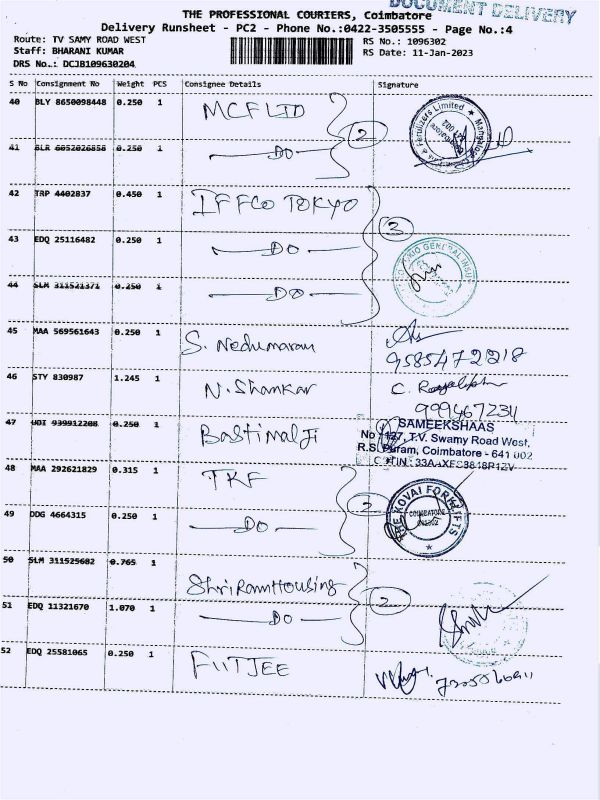 DOCUMENT DELIVERY
THE PROFESSIONAL COURIERS, Coimbatore
Delivery Runsheet - PC2 - Phone No.:0422-3505555 - Page No.:4
Route: TV SAMY ROAD WEST
RS No.: 1096302
Staff: BHARANI KUMAR
RS Date: 11-Jan-2023
DRS No.: DCJB109630204
S No Consignment No Weight PCS Consignee Details Signature
40 BLY 8650098448 0.250 1 MCF LTD
2
& Fertilizers Limited ★ Mangalore
41 BLR 6052026858 0.250 1 DO
42 TRP 4402837 0.450 1 IFFCO TOKYO
3
43 EDQ 25116482 0.250 1 DO
TOKIO GENERAL INSU
44 SLM 311521371 0.250 1 DO
45 MAA 569561643 0.250 1 S. Nedumaran
9585472218
46 STY 830987 1.245 1 N. Shankar
C.
9994672311
47 UDI 939912208 0.250 1 Bastimal Ji
SAMEEKSHAAS
No 127, T.V. Swamy Road West,
R.S. Puram, Coimbatore - 641 002
48 MAA 292621829 0.315 1 TKF
2
THE KOVAI FORKLIFTS
COIMBATORE
49 DDG 4664315 0.250 1 DO
50 SLM 311525682 0.765 1 Shri Ram Housing
2
51 EDQ 11321670 1.070 1 DO
52 EDQ 25581065 0.250 1 FIITJEE